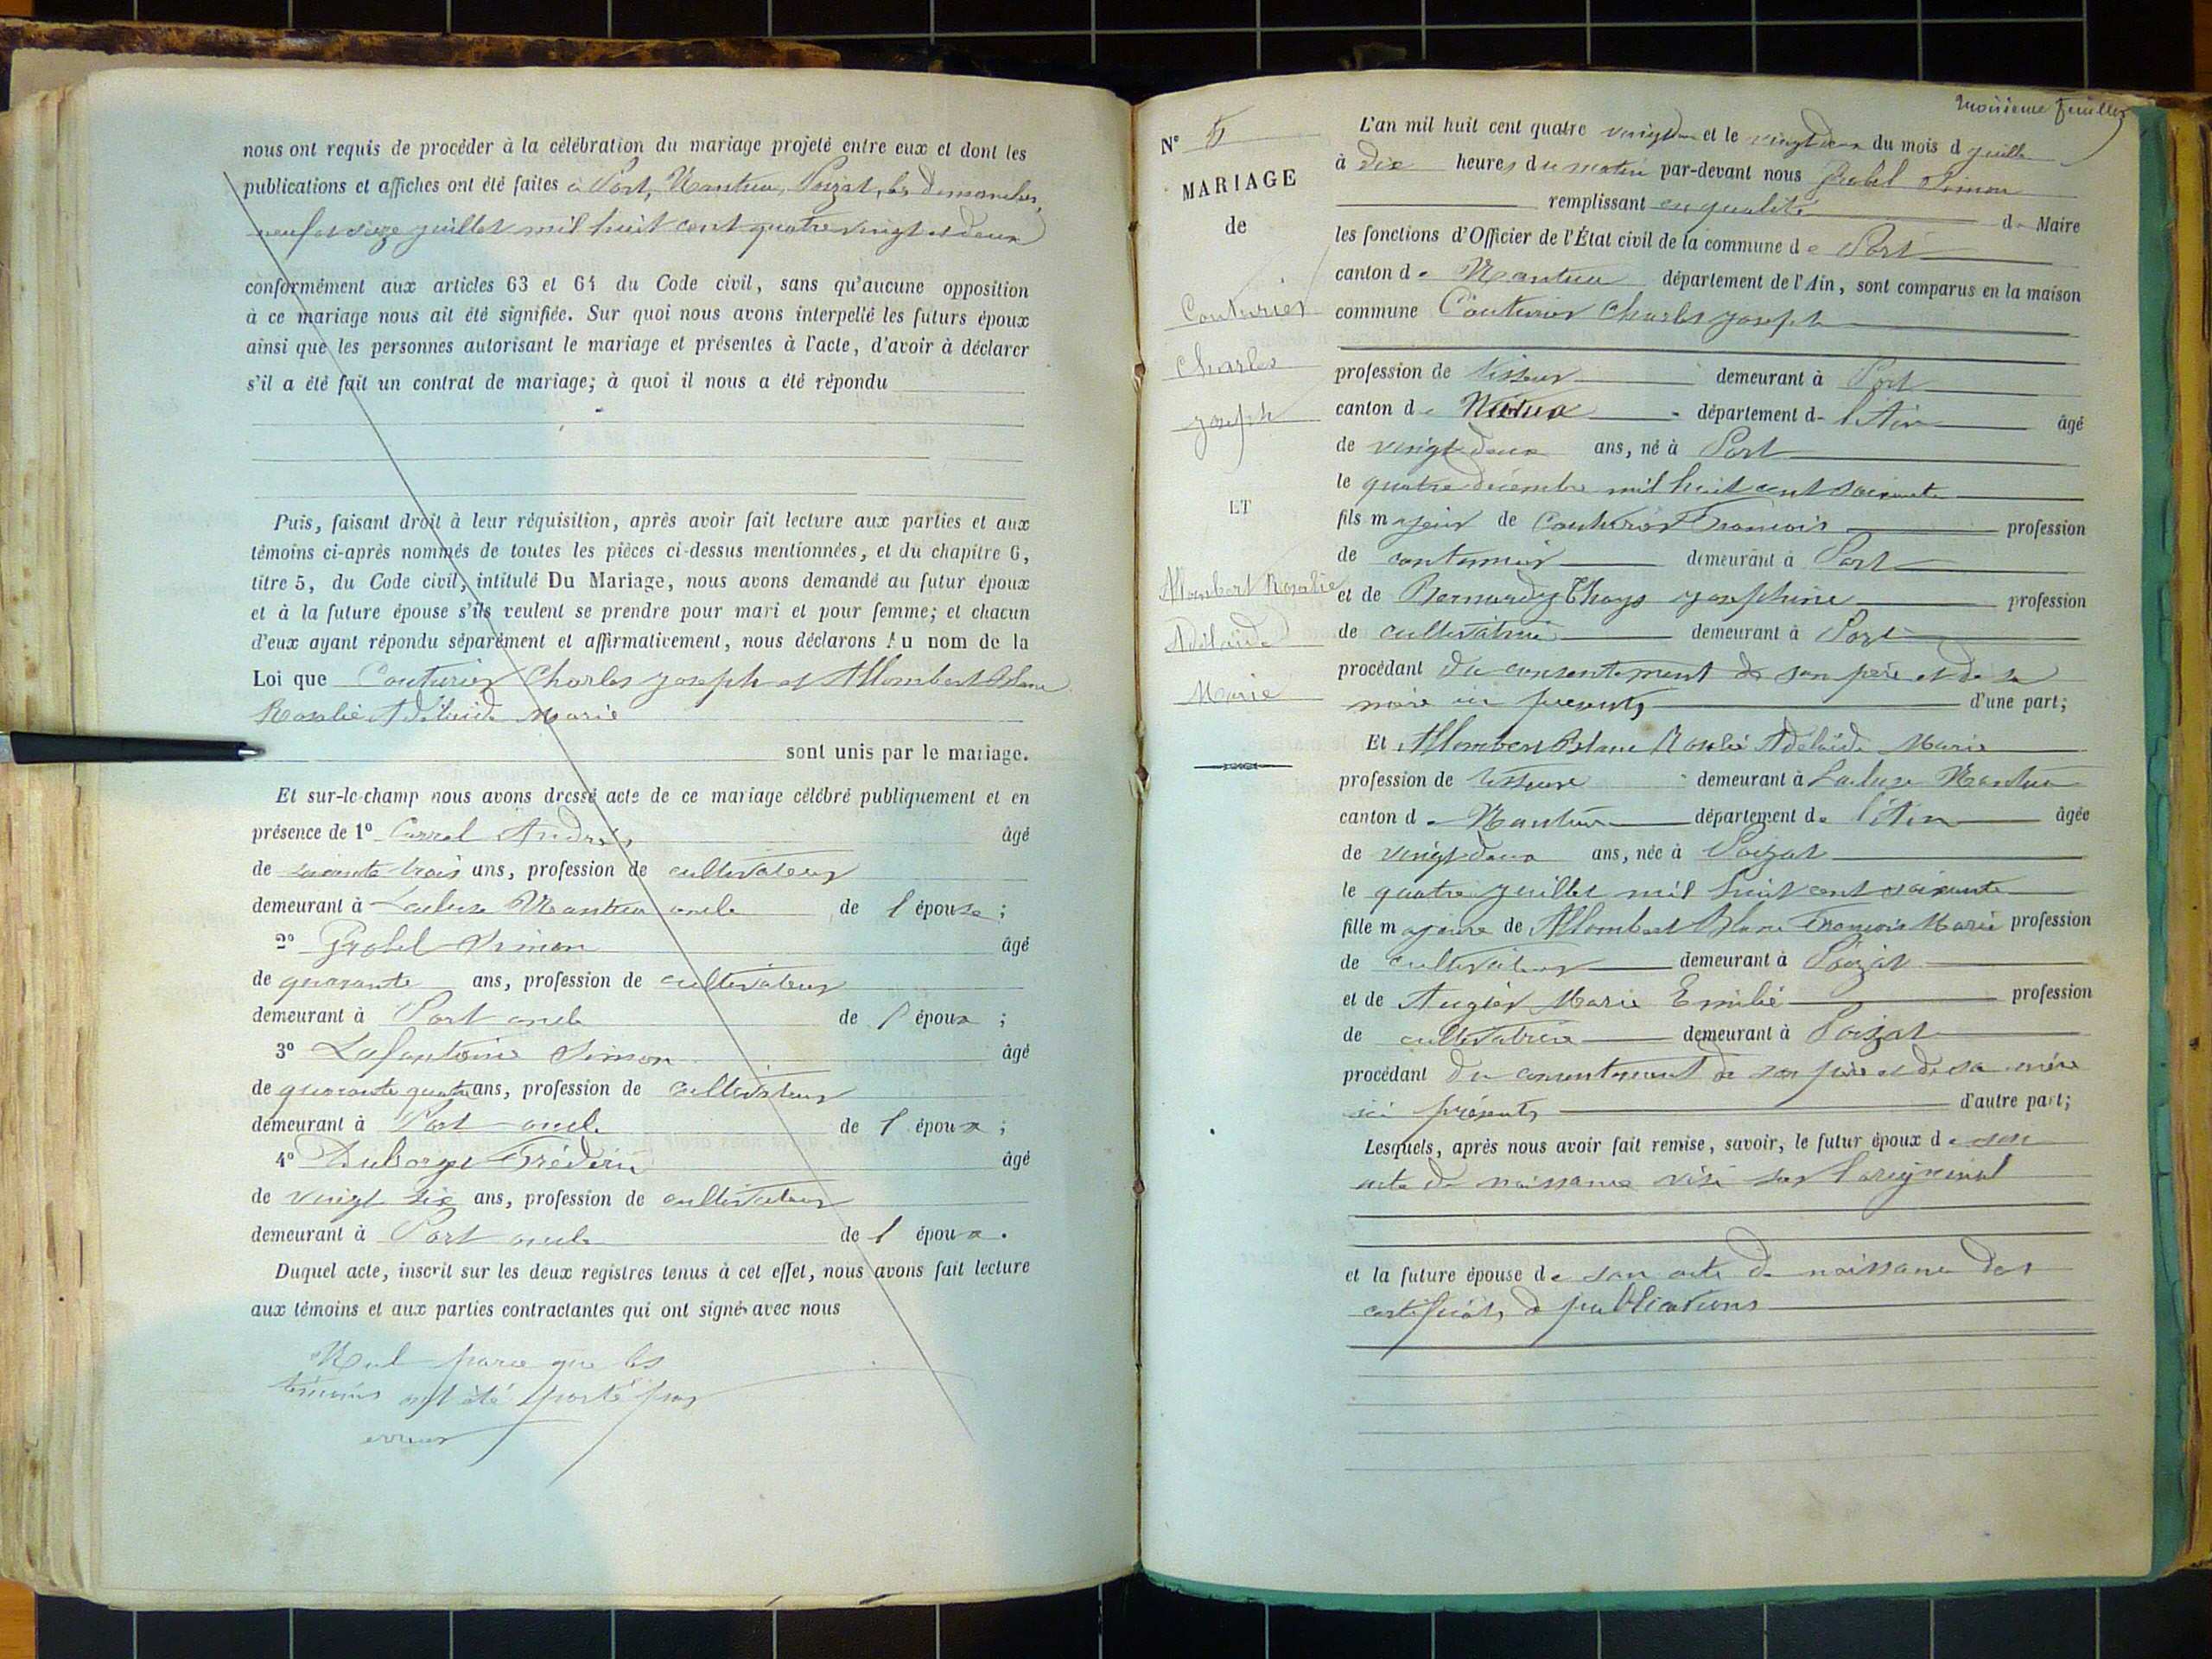 nous ont requis de procéder à la célébration du mariage projeté entre eux et dont les
publications et affiches ont été faites à Port, Nantua, Poizat, les dimanches,
neuf et seize juillet mil huit cent quatre vingt et deux
conformément aux articles 63 et 64 du Code civil, sans qu'aucune opposition
à ce mariage nous ait été signifiée. Sur quoi nous avons interpellé les futurs époux
ainsi que les personnes autorisant le mariage et présentes à l'acte, d'avoir à déclarer
s'il a été fait un contrat de mariage; à quoi il nous a été répondu
Puis, faisant droit à leur réquisition, après avoir fait lecture aux parties et aux
témoins ci-après nommés de toutes les pièces ci-dessus mentionnées, et du chapitre 6,
titre 5, du Code civil, intitulé Du Mariage, nous avons demandé au futur époux
et à la future épouse s'ils veulent se prendre pour mari et pour femme; et chacun
d'eux ayant répondu séparément et affirmativement, nous déclarons Au nom de la
Loi que Couturier Charles joseph et Allombert Blanc
Rosalie Adélaide Marie
sont unis par le mariage.
Et sur-le-champ nous avons dressé acte de ce mariage célébré publiquement et en
présence de 1° Carrel André, âgé
de soixante trois ans, profession de cultivateur
demeurant à Lacluse Nantua oncle de l épouse ;
2° Grobel Simon âgé
de quarante ans, profession de cultivateur
demeurant à Port oncle de l époux ;
3° Lafontaine Simon âgé
de quarante quatre ans, profession de cultivateur
demeurant à Port oncle de l époux ;
4° Duborget Frédéric âgé
de vingt six ans, profession de cultivateur
demeurant à Port oncle de l époux.
Duquel acte, inscrit sur les deux registres tenus à cet effet, nous avons fait lecture
aux témoins et aux parties contractantes qui ont signés avec nous
Nul parce que les
témoins ont été porté par
erreur
troisieme feuillet
N° 5
MARIAGE
de
Couturier
Charles
joseph
ET
Allombert Rosalie
Adélaide
Marie
L'an mil huit cent quatre vingt deux et le vingt deux du mois d juillet
à dix heures du matin par-devant nous Grobel Simon
remplissant en qualité de Maire
les fonctions d'Officier de l'État civil de la commune de Port
canton de Nantua département de l'Ain, sont comparus en la maison
commune Couturier Charles joseph
profession de tisseur demeurant à Port
canton de Nantua département de l'Ain âgé
de vingt deux ans, né à Port
le quatre décembre mil huit cent soixante
fils majeur de Couturier François profession
de demeurant à Port
et de Bernardy Thoys josephine profession
de cultivatrice demeurant à Port
procédant du consentement de son père et de sa
mère ici présents d'une part;
Et Allombert Blanc Rosalie Adélaide Marie
profession de tisseuse demeurant à Lacluse Nantua
canton de Nantua département de l'Ain âgée
de vingt deux ans, née à Poizat
le quatre juillet mil huit cent soixante
fille majeure de Allombert Blanc François Marie profession
de cultivateur demeurant à Poizat
et de Augier Marie Emilie profession
de cultivatrice demeurant à Poizat
procédant du consentement de son père et de sa mère
ici présents d'autre part;
Lesquels, après nous avoir fait remise, savoir, le futur époux de son
acte de naissance visé sur l'original
et la future épouse de son acte de naissance des
certificats de publications